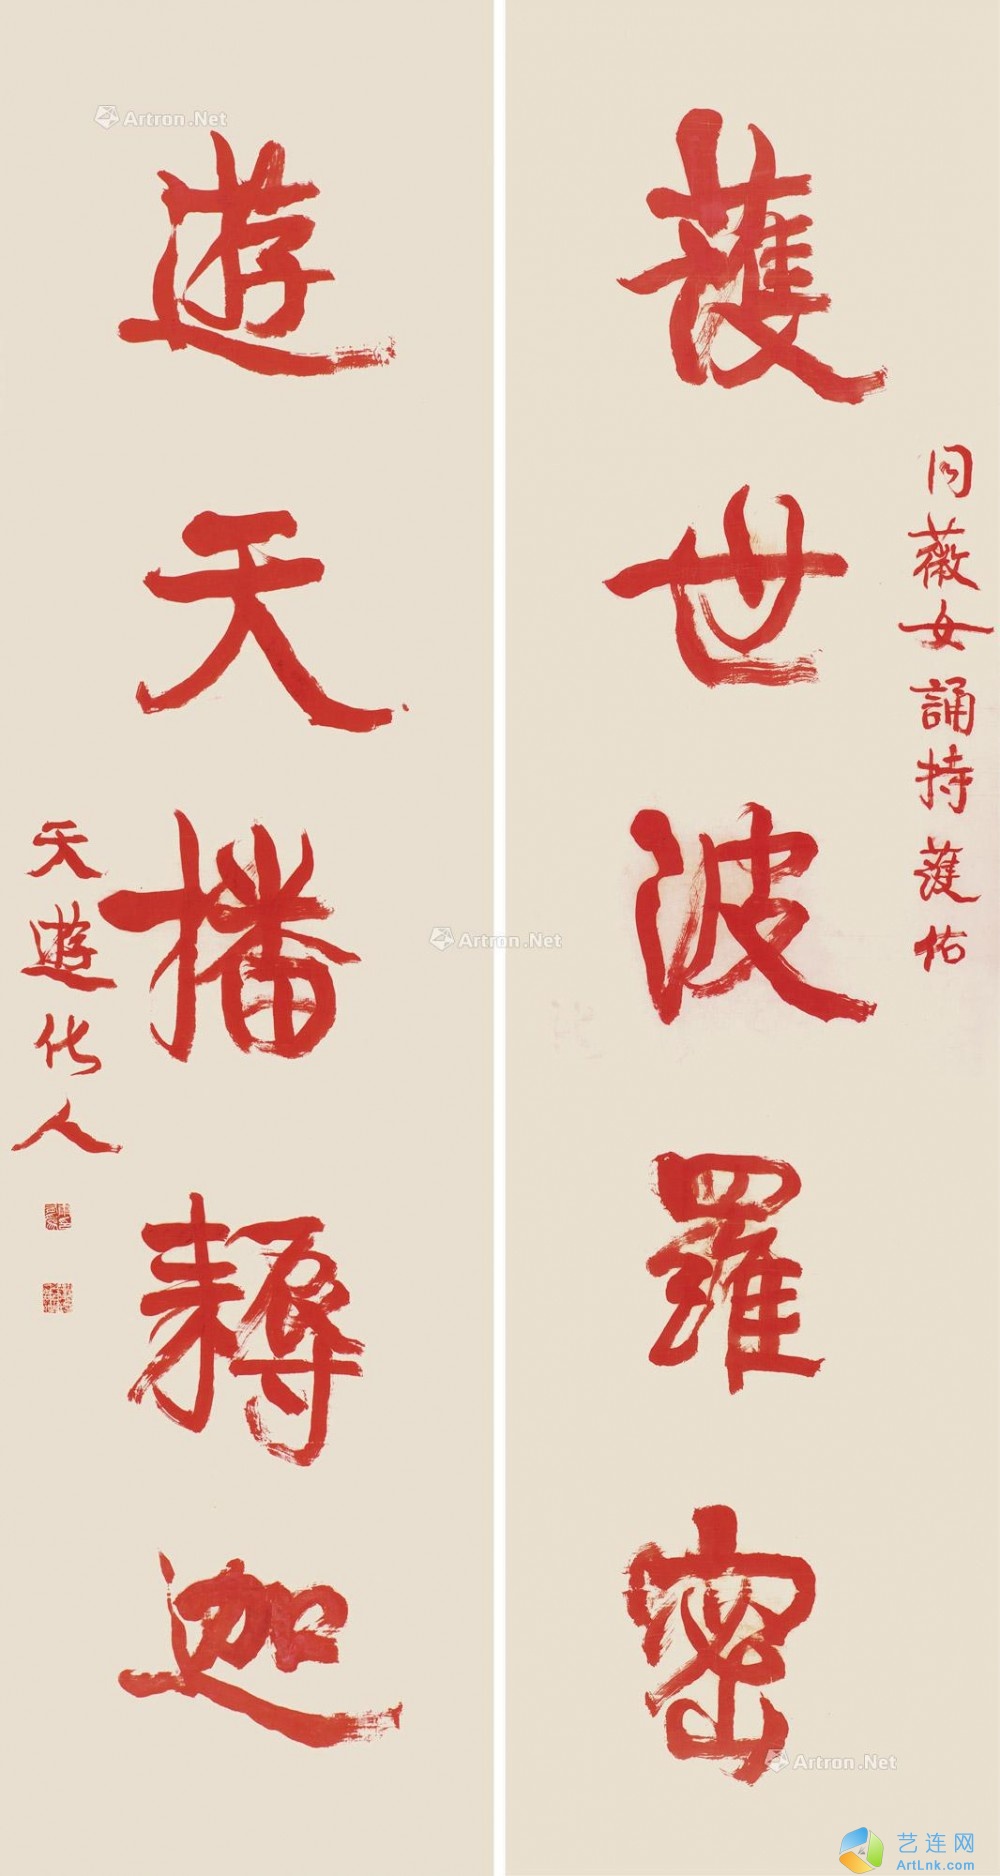 同薇女誦持護佑
護世波羅密
遊天播耨迦
天遊化人
Artron.Net
Artron.Net
Artron.Net
艺连网
ArtLnk.com